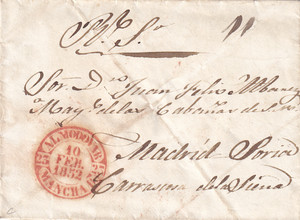 Pl. S.
Sor. Dn. Juan Felix Ybanez
May. de las Cabañas de
Madrid Soria
Carrascosa de la Sierra
ALMODOVAR
10
FEB.
1852
MANCHA